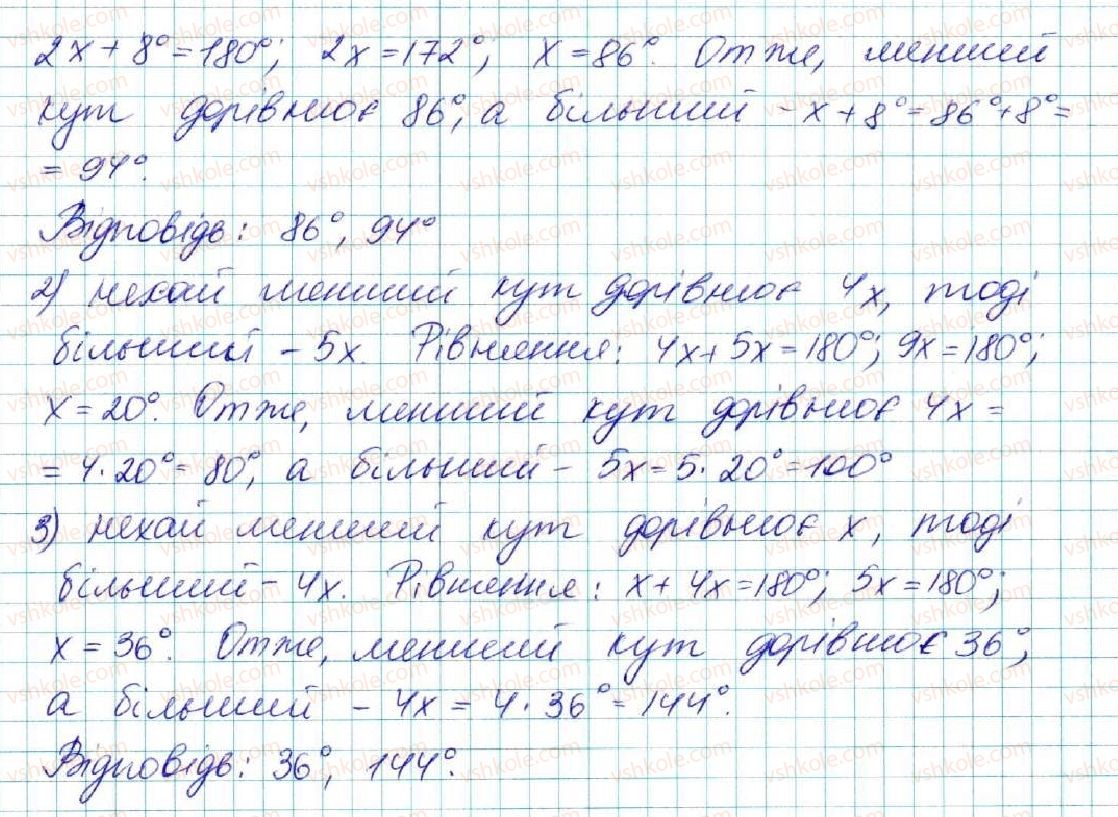 2x + 8° = 180°; 2x = 172°; x = 86°. Отже, менший
кут дорівнює 86°, а більший - x + 8° = 86° + 8° =
= 94°.
Відповідь: 86°, 94°
2) Нехай менший кут дорівнює 4x, тоді
більший - 5x. Рівняння: 4x + 5x = 180°; 9x = 180°;
x = 20°. Отже, менший кут дорівнює 4x =
= 4 · 20° = 80°, а більший - 5x = 5 · 20° = 100°
3) Нехай менший кут дорівнює x, тоді
більший - 4x. Рівняння: x + 4x = 180°; 5x = 180°;
x = 36°. Отже, менший кут дорівнює 36°,
а більший - 4x = 4 · 36° = 144°.
Відповідь: 36°, 144°.
vshkole.com